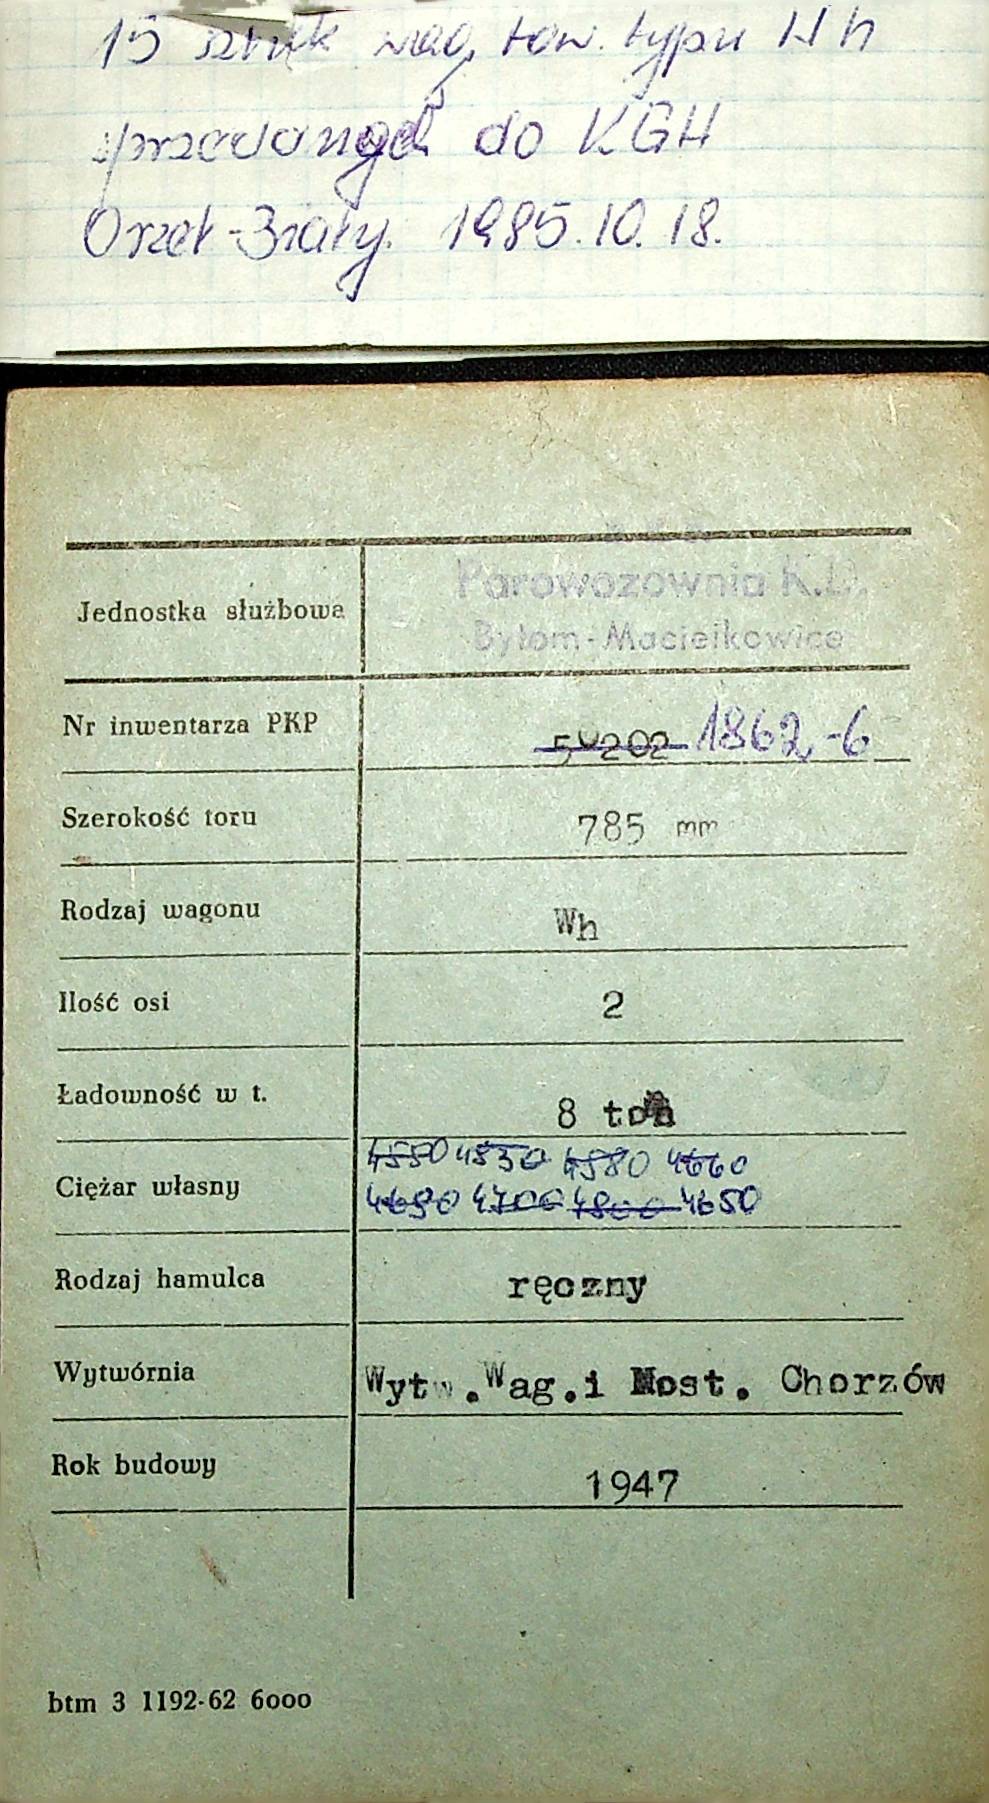 15 sztuk wag. tow. typu Wh
sprzedanych do KGH
Orzeł-Biały. 1985.10.18.
Jednostka służbowa
Parowozownia K.D.
Bytom-Maciejkowice
Nr inwentarza PKP 50202 1862-6
Szerokość toru 785 mm
Rodzaj wagonu Wh
Ilość osi 2
Ładowność w t. 8 ton
4550 4830 4580 4660
Ciężar własny 4680 4700 4800 4650
Rodzaj hamulca ręczny
Wytwórnia Wytw.Wag.i Most. Chorzów
Rok budowy 1947
btm 3 1192-62 6000